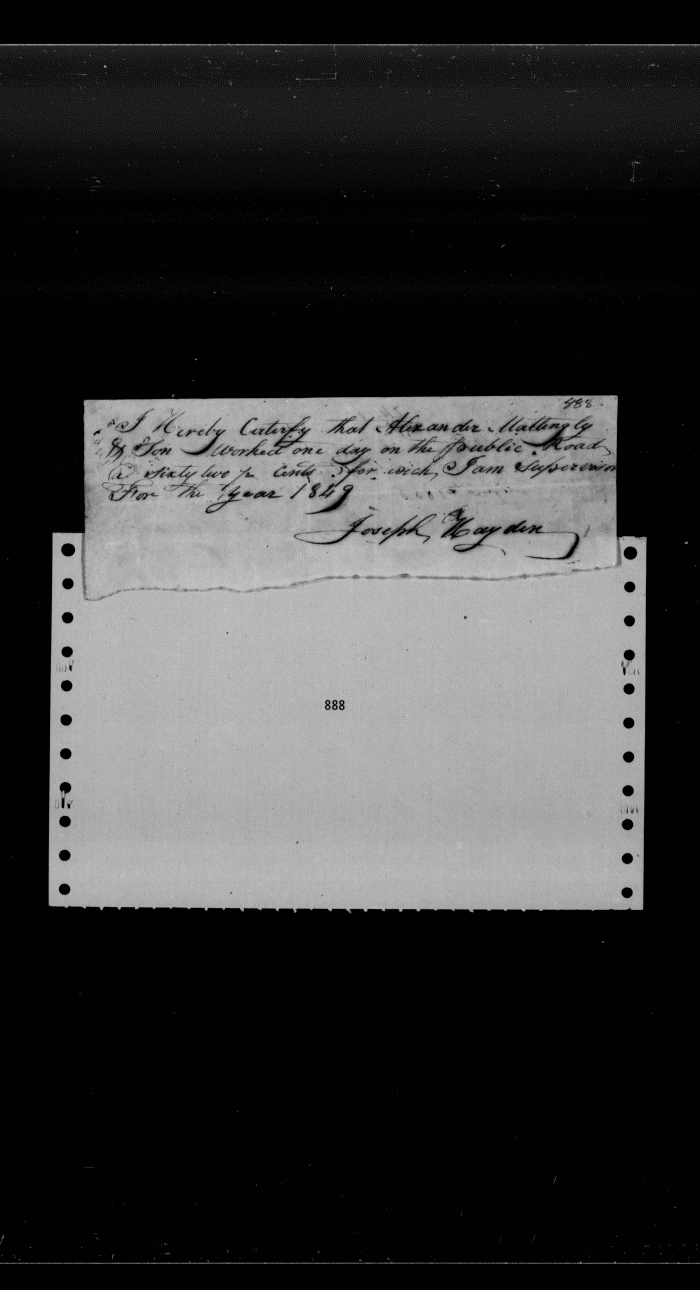 888.
I Hereby Certify that Alexander Mattingly
& Son Worked one day on the public Road
@ sixty two pr Cents for wich I am Supervisor
For the year 1849
Joseph Hayden
888